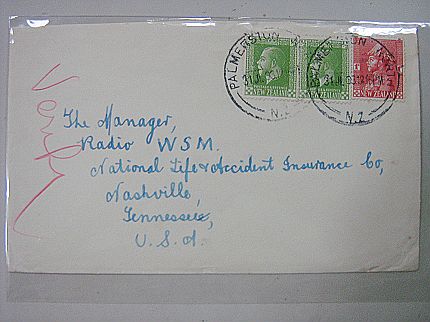 PALMERSTON NTH
N.Z.
NEW ZEALAND
NEW ZEALAND
NEW ZEALAND
Verify
The Manager,
Radio WSM.
National Life & Accident Insurance Co,
Nashville,
Tennessee,
U.S.A.